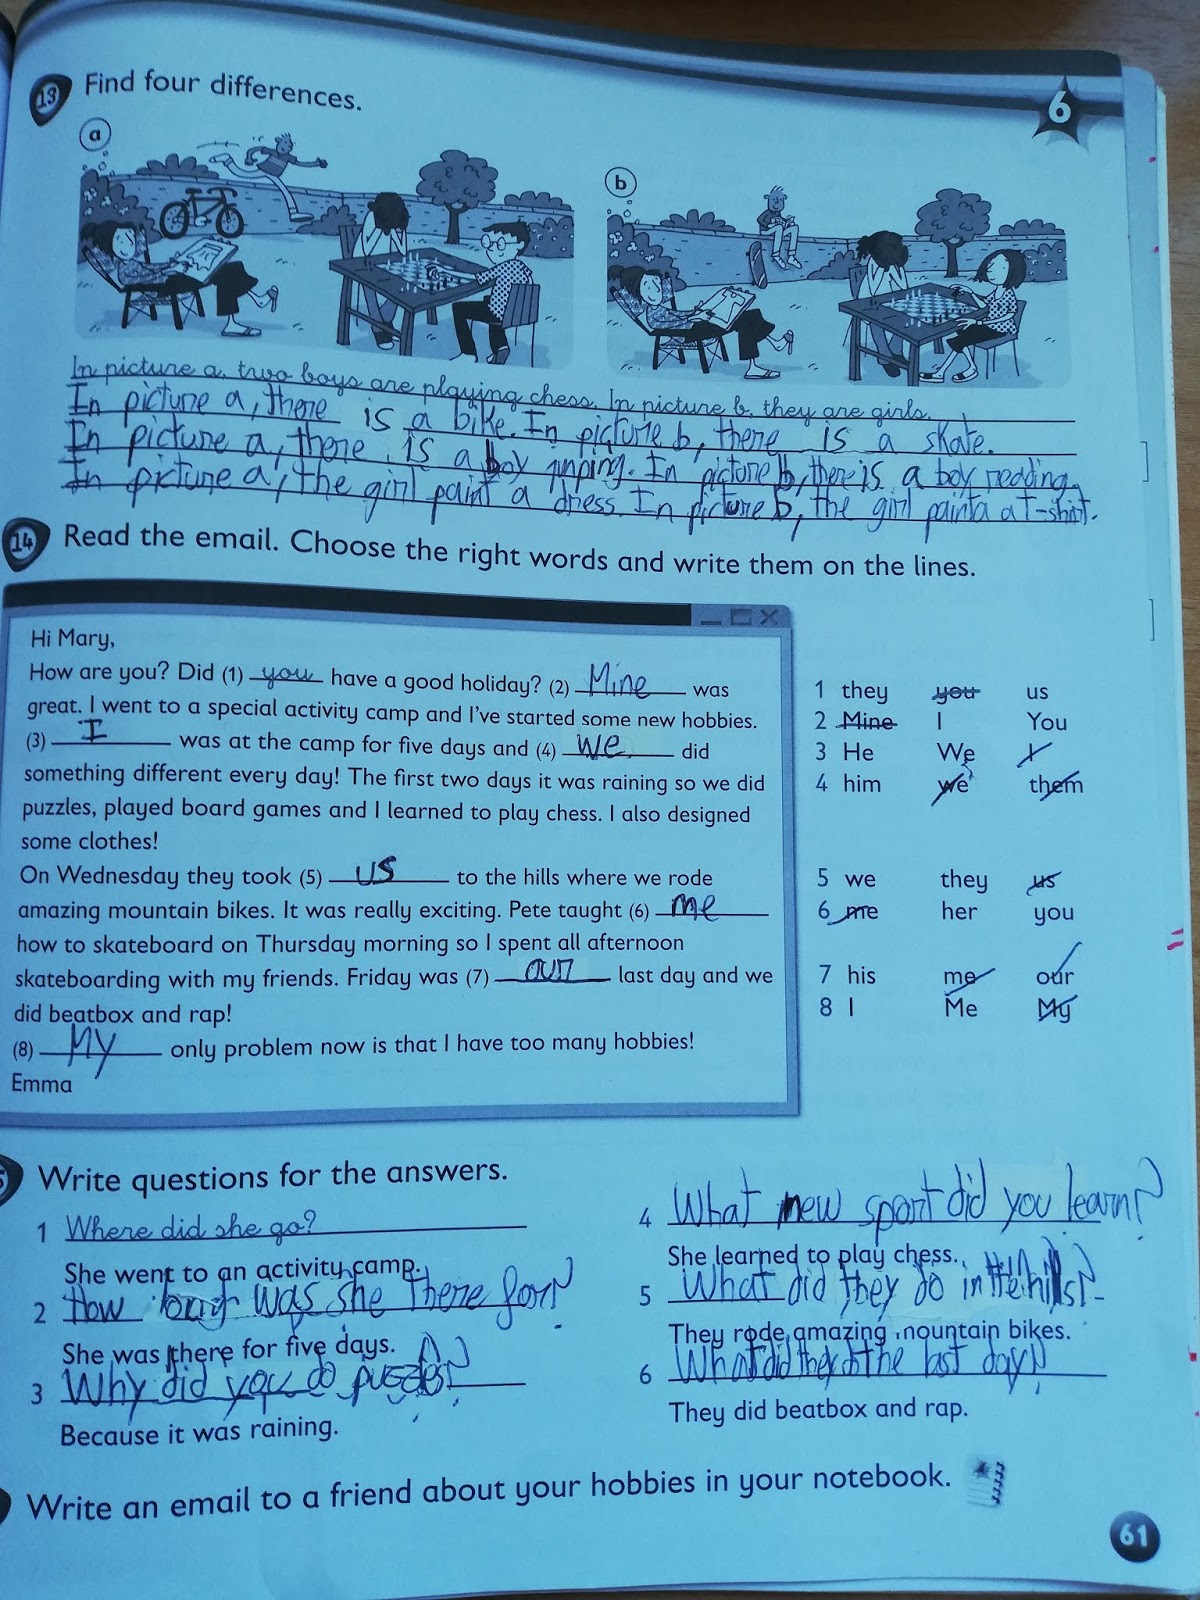 13 Find four differences.
6
a
b
In picture a, two boys are playing chess. In picture b, they are girls.
In picture a, there is a bike. In picture b, there is a skate.
In picture a, there is a boy jumping. In picture b, there is a boy redding.
In picture a, the girl paint a dress. In picture b, the girl paint a T-shirt.
14 Read the email. Choose the right words and write them on the lines.
Hi Mary,
How are you? Did (1) you have a good holiday? (2) Mine was
great. I went to a special activity camp and I've started some new hobbies.
(3) I was at the camp for five days and (4) we did
something different every day! The first two days it was raining so we did
puzzles, played board games and I learned to play chess. I also designed
some clothes!
On Wednesday they took (5) us to the hills where we rode
amazing mountain bikes. It was really exciting. Pete taught (6) me
how to skateboard on Thursday morning so I spent all afternoon
skateboarding with my friends. Friday was (7) our last day and we
did beatbox and rap!
(8) My only problem now is that I have too many hobbies!
Emma
1 they you us
2 Mine I You
3 He We I
4 him we them
5 we they us
6 me her you
7 his me our
8 I Me My
5 Write questions for the answers.
1 Where did she go?
She went to an activity camp.
2 How long was she there for?
She was there for five days.
3 Why did you do puzzles?
Because it was raining.
4 What new sport did you learn?
She learned to play chess.
5 What did they do in the hills?
They rode amazing mountain bikes.
6 What did they do the last day?
They did beatbox and rap.
Write an email to a friend about your hobbies in your notebook.
61